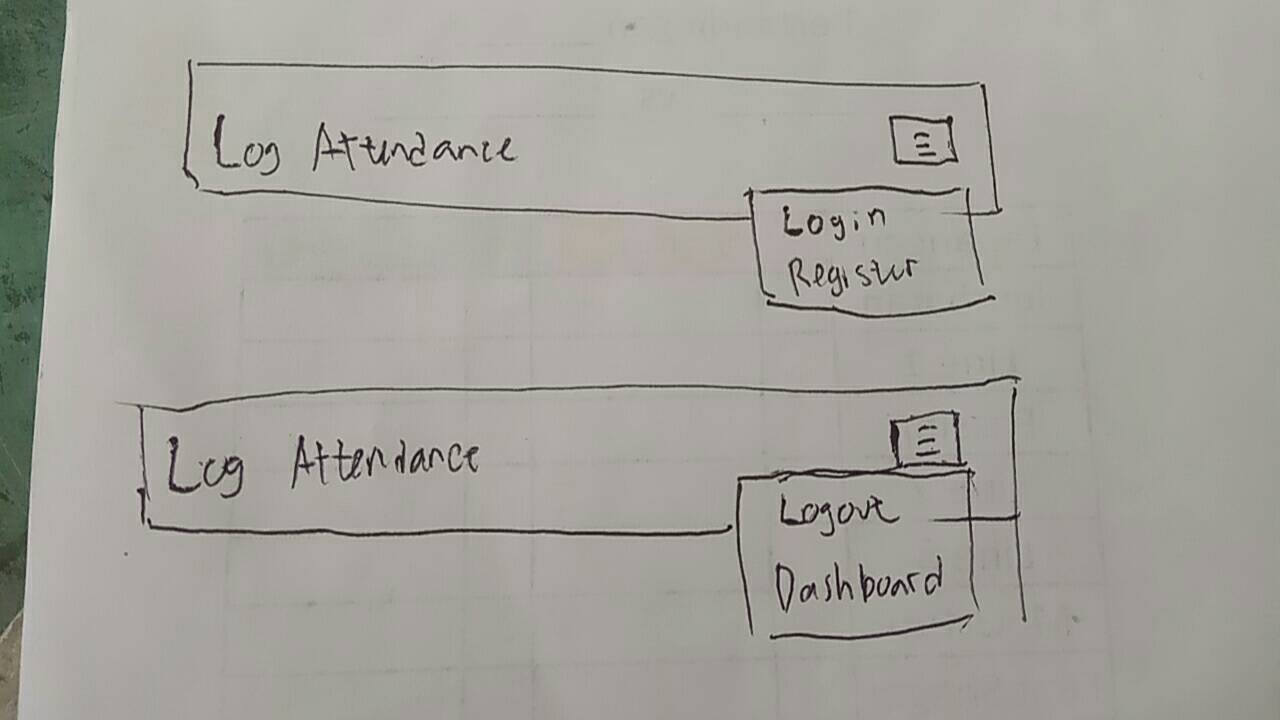 Log Attendance
Login
Register
Log Attendance
Logout
Dashboard